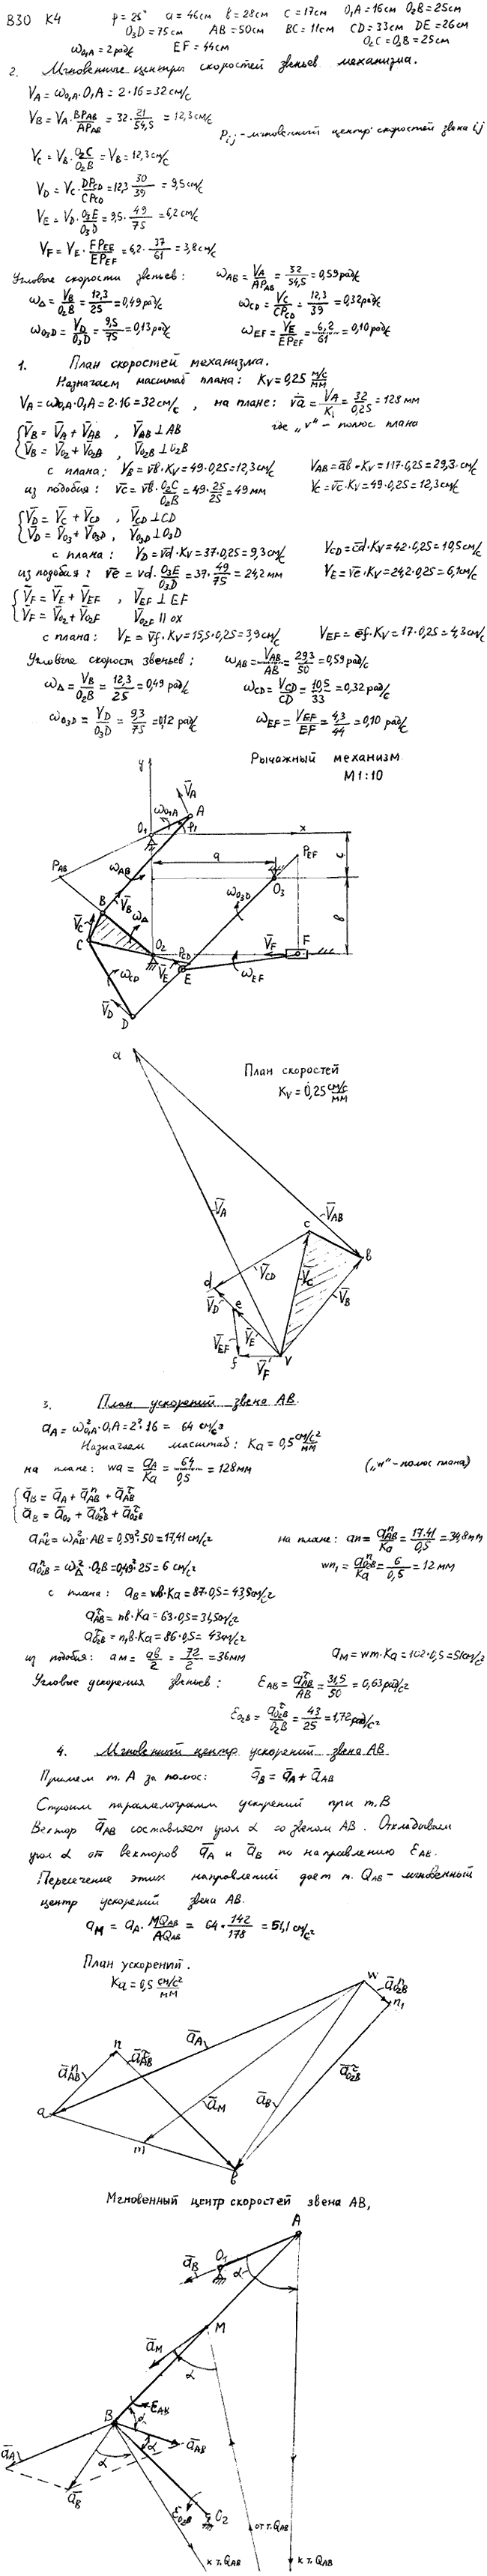 В30 К4 φ = 25° a = 46см b = 28см c = 17см O₁A = 16см O₂B = 25см
O₃D = 75см AB = 50см BC = 11см CD = 33см DE = 26см
ω₀₁A = 2рад/с EF = 44см O₂C = O₂B = 25см
2. Мгновенные центры скоростей звеньев механизма.
V_A = ω₀₁A·O₁A = 2·16 = 32см/с
V_B = V_A·BP_AB/AP_AB = 32·21/54,5 = 12,3см/с
P_ij – мгновенный центр скоростей звена ij
V_C = V_B·O₂C/O₂B = V_B = 12,3см/с
V_D = V_C·DP_CD/CP_CD = 12,3·30/39 = 9,5см/с
V_E = V_D·O₃E/O₃D = 9,5·49/75 = 6,2см/с
V_F = V_E·FP_EF/EP_EF = 6,2·37/61 = 3,8см/с
Угловые скорости звеньев: ω_AB = V_A/AP_AB = 32/54,5 = 0,59рад/с
ω_Δ = V_B/O₂B = 12,3/25 = 0,49рад/с ω_CD = V_C/CP_CD = 12,3/39 = 0,32рад/с
ω_O₃D = V_D/O₃D = 9,5/75 = 0,13рад/с ω_EF = V_E/EP_EF = 6,2/61 = 0,10рад/с
1. План скоростей механизма.
Назначаем масштаб плана: K_V = 0,25 м/с/мм
V_A = ω₀₁A·O₁A = 2·16 = 32см/с, на плане: va = V_A/K_v = 32/0,25 = 128 мм
V̄_B = V̄_A + V̄_AB, V̄_AB ⊥ AB где „v" – полюс плана
V̄_B = V̄_O₂ + V̄_O₂B, V̄_O₂B ⊥ O₂B
с плана: V_B = vb·K_V = 49·0,25 = 12,3см/с V_AB = ab·K_V = 117·0,25 = 29,3см/с
из подобия: vc = vb·O₂C/O₂B = 49·25/25 = 49 мм V_C = vc·K_V = 49·0,25 = 12,3см/с
V̄_D = V̄_C + V̄_CD, V̄_CD ⊥ CD
V̄_D = V̄_O₃ + V̄_O₃D, V̄_O₃D ⊥ O₃D
с плана: V_D = vd·K_V = 37·0,25 = 9,3см/с V_CD = cd·K_V = 42·0,25 = 10,5см/с
из подобия: ve = vd·O₃E/O₃D = 37·49/75 = 24,2мм V_E = ve·K_V = 24,2·0,25 = 6,1см/с
V̄_F = V̄_E + V̄_EF, V̄_EF ⊥ EF
V̄_F = V̄_O₂ + V̄_O₂F V̄_O₂F ∥ ox
с плана: V_F = vf·K_V = 15,5·0,25 = 3,9см/с V_EF = ef·K_V = 17·0,25 = 4,3см/с
Угловые скорости звеньев: ω_AB = V_AB/AB = 29,3/50 = 0,59рад/с
ω_Δ = V_B/O₂B = 12,3/25 = 0,49 рад/с ω_CD = V_CD/CD = 10,5/33 = 0,32рад/с
ω_O₃D = V_D/O₃D = 9,3/75 = 0,12 рад/с ω_EF = V_EF/EF = 4,3/44 = 0,10 рад/с
Рычажный механизм
М1:10
y
V̄_A
A
ω_O₁A
O₁ φ₁ x
P_AB a P_EF c
ω_AB O₃
B V̄_B ω_Δ ω_O₃D b
V̄_C
C O₂ P_CD V̄_F F
V̄_E E ω_EF
ω_CD
V̄_D D
a
План скоростей
K_V = 0,25 см/с/мм
V̄_A V̄_AB
c
b
V̄_CD V̄_C
d V̄_B
V̄_D e
V̄_EF V̄_E
f V̄_F v
3. План ускорений звена АВ.
a_A = ω²_O₁A·O₁A = 2²·16 = 64 см/с²
Назначаем масштаб: K_a = 0,5 см/с²/мм
на плане: wa = a_A/K_a = 64/0,5 = 128мм („w" – полюс плана)
ā_B = ā_A + ā^n_AB + ā^τ_AB
ā_B = ā_O₂ + ā^n_O₂B + ā^τ_O₂B
a^n_AB = ω²_AB·AB = 0,59²·50 = 17,41см/с² на плане: an = a^n_AB/K_a = 17,41/0,5 = 34,8мм
a^n_O₂B = ω²_Δ·O₂B = 0,49²·25 = 6 см/с² wn₁ = a^n_O₂B/K_a = 6/0,5 = 12 мм
с плана: a_B = wb·K_a = 87·0,5 = 43,5см/с²
a^τ_AB = nb·K_a = 63·0,5 = 31,5см/с²
a^τ_O₂B = n₁b·K_a = 86·0,5 = 43см/с²
из подобия: am = ab/2 = 72/2 = 36мм a_M = wm·K_a = 102·0,5 = 51см/с²
Угловые ускорения звеньев: ε_AB = a^τ_AB/AB = 31,5/50 = 0,63рад/с²
ε_O₂B = a^τ_O₂B/O₂B = 43/25 = 1,72рад/с²
4. Мгновенный центр ускорений звена АВ
Примем т. А за полюс: ā_B = ā_A + ā_AB
Строим параллелограмм ускорений при т.В
Вектор ā_AB составляет угол α со звеном АВ. Откладываем
угол α от векторов ā_A и ā_B по направлению ε_AB.
Пересечение этих направлений дает т. Q_AB – мгновенный
центр ускорений звена АВ.
a_M = a_A·MQ_AB/AQ_AB = 64·142/178 = 51,1 см/с²
План ускорений.
K_a = 0,5 см/с²/мм
w ā^n_O₂B
n₁
ā_A
n ā^τ_AB
ā^n_AB
ā_M ā_B ā^τ_O₂B
a
m
b
Мгновенный центр скоростей звена АВ,
A
O₁
ā_B α
M
ā_M
α
ε_AB
B α
ā_A ā_AB
α α
ā_B
ε_O₂B O₂
от т. Q_AB
к т. Q_AB к т. Q_AB